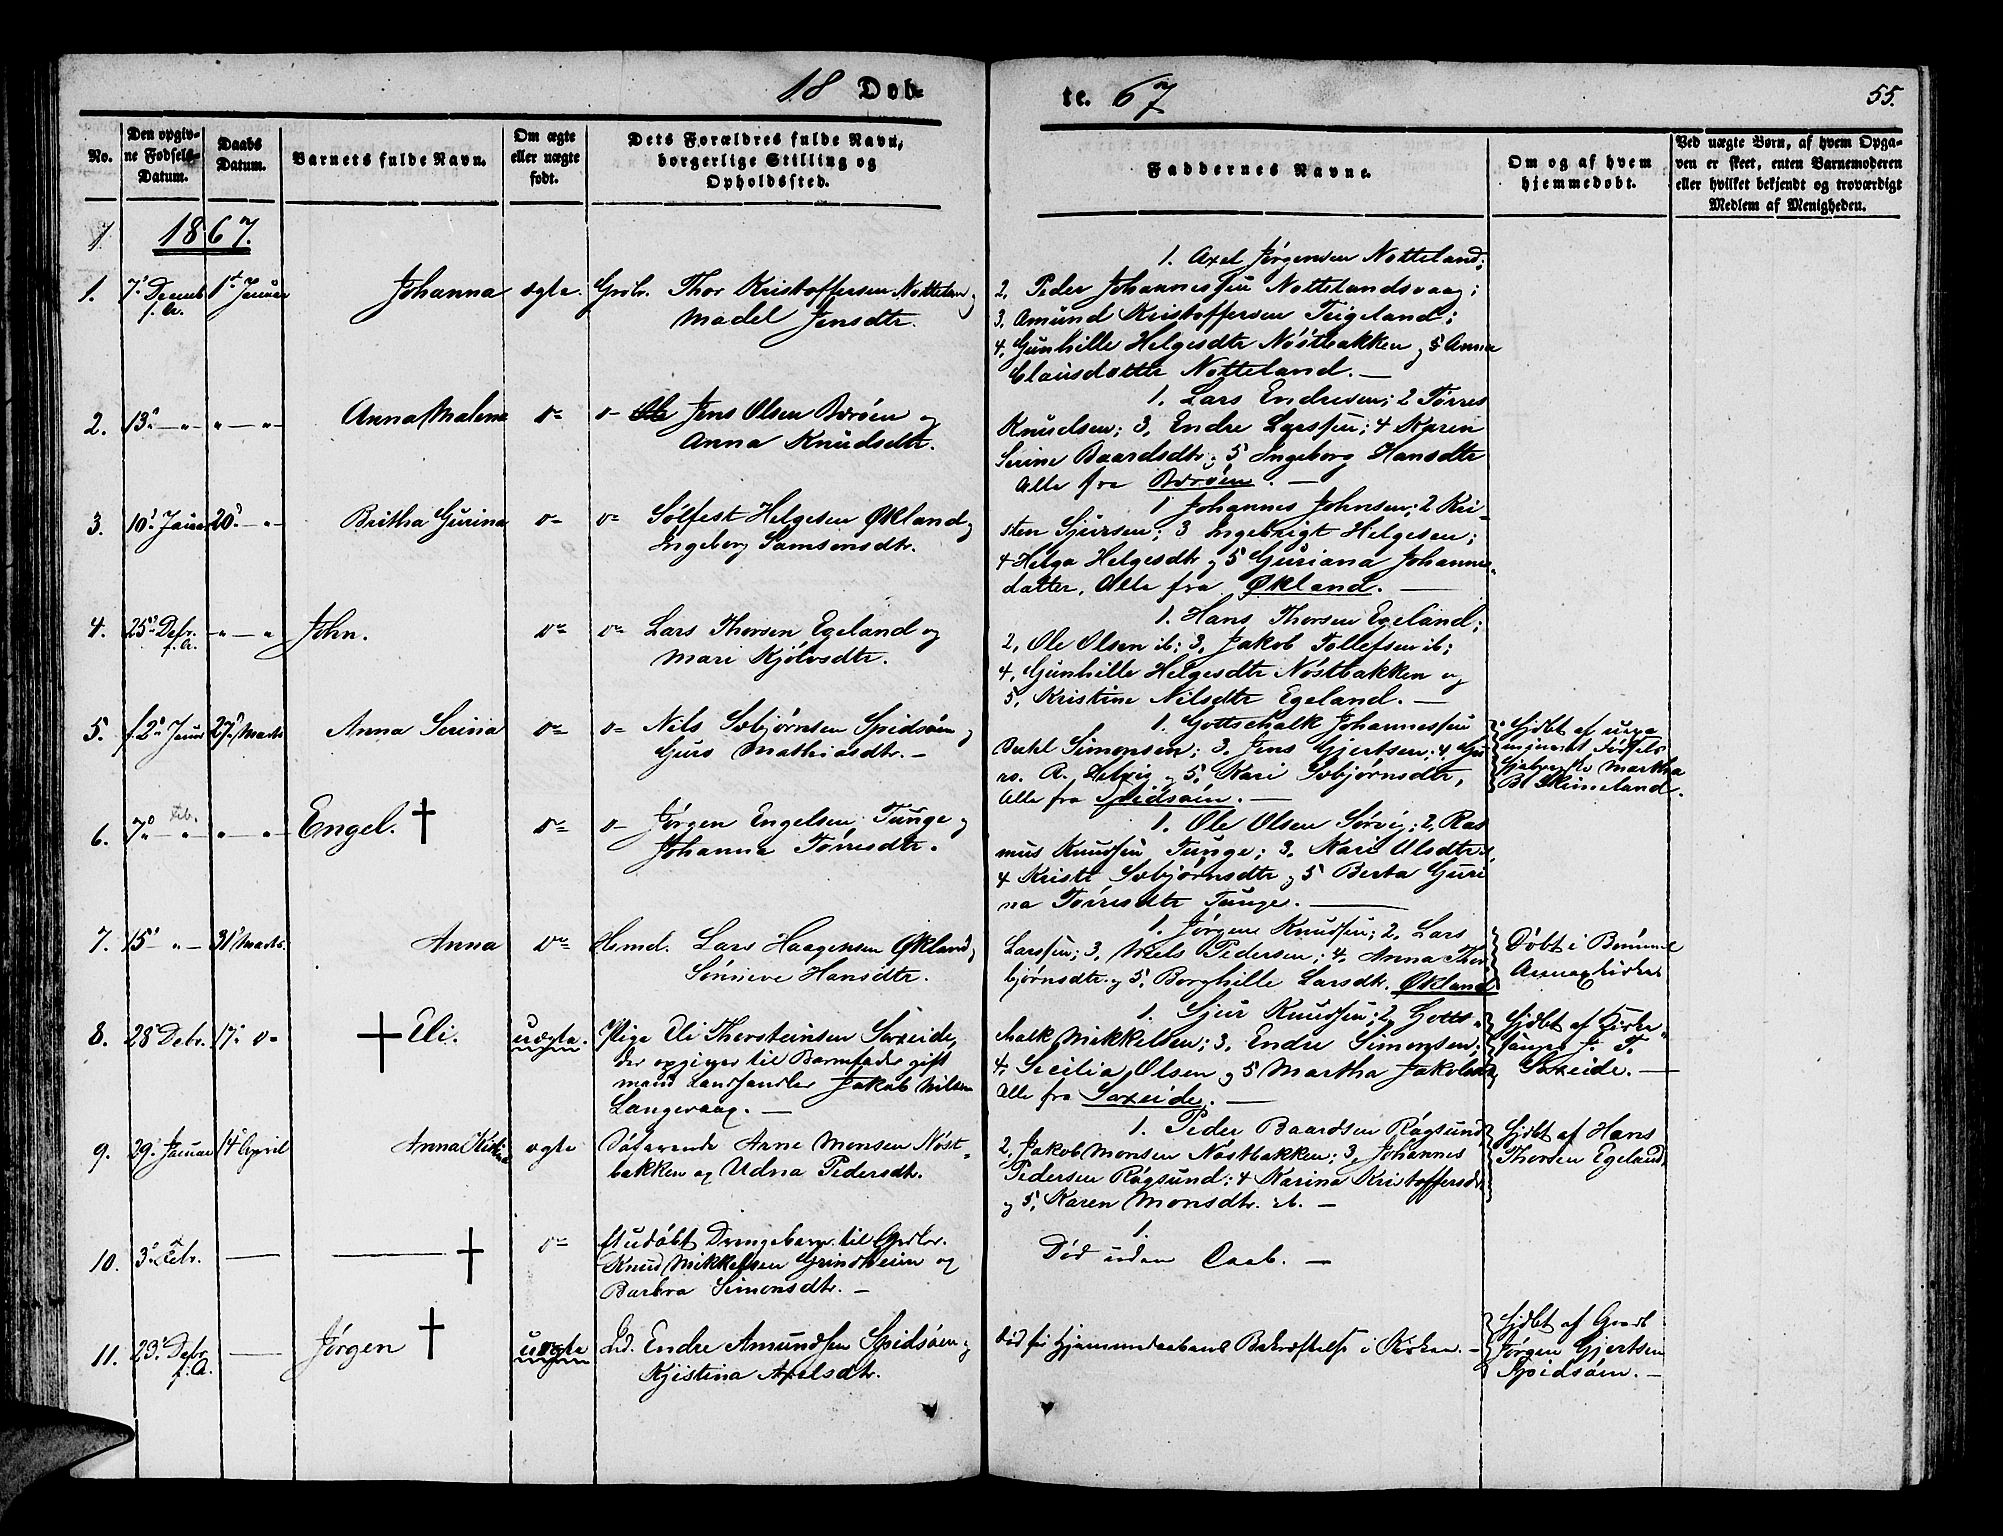 18 Døb-
te. 67
55.
No.
Den opgiv-
ne Fødsels-
Datum.
Daabs
Datum.
Barnets fulde Navn.
Om ægte
eller uægte
født.
Dets Forældres fulde Navn,
borgerlige Stilling og
Opholdssted.
Faddernes Navne.
Om og af hvem
hjemmedøbt.
Ved uægte Børn, af hvem Opga-
ven er skeet, enten Barnemoderen
eller hvilket bekjendt og troværdigt
Medlem af Menigheden.
1867.
1. 7 Decmb. f.A. 1st Januar Johanna ægte. Grdbr. Thor Kristoffersen Notteland og
Madel Jensdtr.
1. Axel Jørgensen Notteland;
2. Peder Johannessen Nottelandsvaag;
3. Amund Kristoffersen Teigeland;
4. Gunhille Helgesdtr Nøstbakken og 5 Anna
Clausdatter Notteland. —
2. 13 — " " — " Anna Malena do do Jens Olsen Børøen og
Anna Knudsdtr.
1. Lars Endresen; 2 Tørres
Knudsen; 3, Endre Larssen; 4 Karen
Serine Baardsdtr og 5 Ingeborg Hansdtr
Alle fra Børøen. —
3. 10 Januar 20 — " Britha Gurina do do Sølfest Helgesen Økland og
Ingeborg Samsonsdtr.
1 Johannes Johnsen; 2 Kri-
sten Sjursen; 3 Ingebrigt Helgesen;
4 Helga Helgesdtr og 5 Guriana Johannes-
datter, Alle fra Økland. —
4. 25 Debr. f.A. " — " John. do do Lars Thorsen Egeland og
Mari Kjølvsdtr.
1. Hans Thorsen Egeland;
2, Ole Olsen ib; 3, Jakob Tollefsen ib;
4, Gunhille Helgesdtr Nøstbakken og
5, Kristine Nilsdtr Egeland. —
5. 2 Januar 27 Marts Anna Serina do do Nils Sæbjørnsen Spidsøen og
Guro Mathiasdtr. —
1. Gottschalk Johannessen
Bertel Simonsen; 3, Jens Gjertsen; 4 Gu
ro. A. og 5. Kari Sæbjørnsdtr,
Alle fra Spidsøen. —
Hjdbt af uexa
mineret Fødsels
hjelperske Martha
B. Skimeland.
6. 7 Feb. " " — " Engel. † do do Jørgen Engelsen Tunge og
Johanna Tørresdtr.
1. Ole Olsen Sørvig; 2, Ras
mus Knudsen Tunge; 3, Kari Olsdtr;
4 Kristi Sæbjørnsdtr og 5 Berta Guri
na Tørresdtr Tunge. —
7. 15 " — 31 Marts. Anna do Hsmd. Lars Haagensen Økland og
Sønneve Hansdtr.
1. Jørgen Knudsen; 2, Lars
Larssen; 3, Niels Pedersen; 4, Anna Thor
bjørnsdtr. og 5, Borghille Larsdtr. Økland
Døbt i Bømmel
Annexkirke
8. 28 Debr. 17 do † Eli. uægte. Pige Eli Thorsteinsen Sørxeide,
der opgiver til Barnefader gift
mand Landhandler Jakob Nilsen
Langevaag. —
1. Sjur Knudsen; 2, Gotts-
chalk Mikkelsen; 3, Endre Simonsen;
4, Secilia Olsen og 5 Martha Jakobsen
Alle fra
Hjdbt af Kirke-
sanger J. T.
9. 29 Januar 14 April Anna ægte Søfarende Arne Monsen Nøst-
bakken og Udna Pedersdtr.
1. Peder Baardsen Røgsund
2, Jakob Monsen Nøstbakken; 3, Johannes
Pedersen Røgsund; 4 Karina Kristoffersdtr
og 5, Karen Monsdtr. ib. —
Hjdbt af Hans
Thorsen Egeland.
10. 3 Febr. — — † do Et udøbt Drengebarn til Grdbr.
Knud Mikkelsen Grindheim og
Barbra Simonsdtr. —
1.
Død uden Daab. —
11. 23 Debr. f.A. — Jørgen † uægte Endre Amundsen Spidsøen og
Kjistina Axelsdtr.
Død før Hjemmedaabens Bekræftelse i Kirken. —
Hjdbt af Grdbr
Jørgen Gjertsen
Spidsøen. —